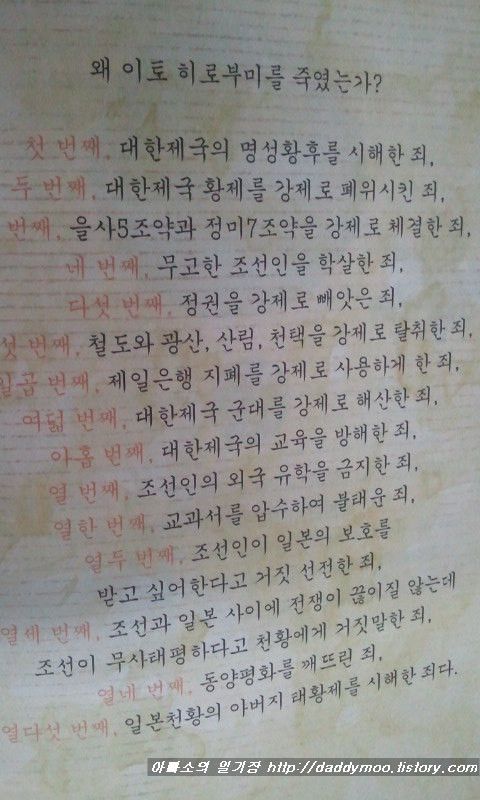 왜 이토 히로부미를 죽였는가?
첫 번째, 대한제국의 명성황후를 시해한 죄,
두 번째, 대한제국 황제를 강제로 폐위시킨 죄,
번째, 을사5조약과 정미7조약을 강제로 체결한 죄,
네 번째, 무고한 조선인을 학살한 죄,
다섯 번째, 정권을 강제로 빼앗은 죄,
섯 번째, 철도와 광산, 산림, 천택을 강제로 탈취한 죄,
일곱 번째, 제일은행 지폐를 강제로 사용하게 한 죄,
여덟 번째, 대한제국 군대를 강제로 해산한 죄,
아홉 번째, 대한제국의 교육을 방해한 죄,
열 번째, 조선인의 외국 유학을 금지한 죄,
열한 번째, 교과서를 압수하여 불태운 죄,
열두 번째, 조선인이 일본의 보호를
받고 싶어한다고 거짓 선전한 죄,
열세 번째, 조선과 일본 사이에 전쟁이 끊이질 않는데
조선이 무사태평하다고 천황에게 거짓말한 죄,
열네 번째, 동양평화를 깨뜨린 죄,
열다섯 번째, 일본천황의 아버지 태황제를 시해한 죄다.
아빠소의 일기장 http://daddymoo.tistory.com